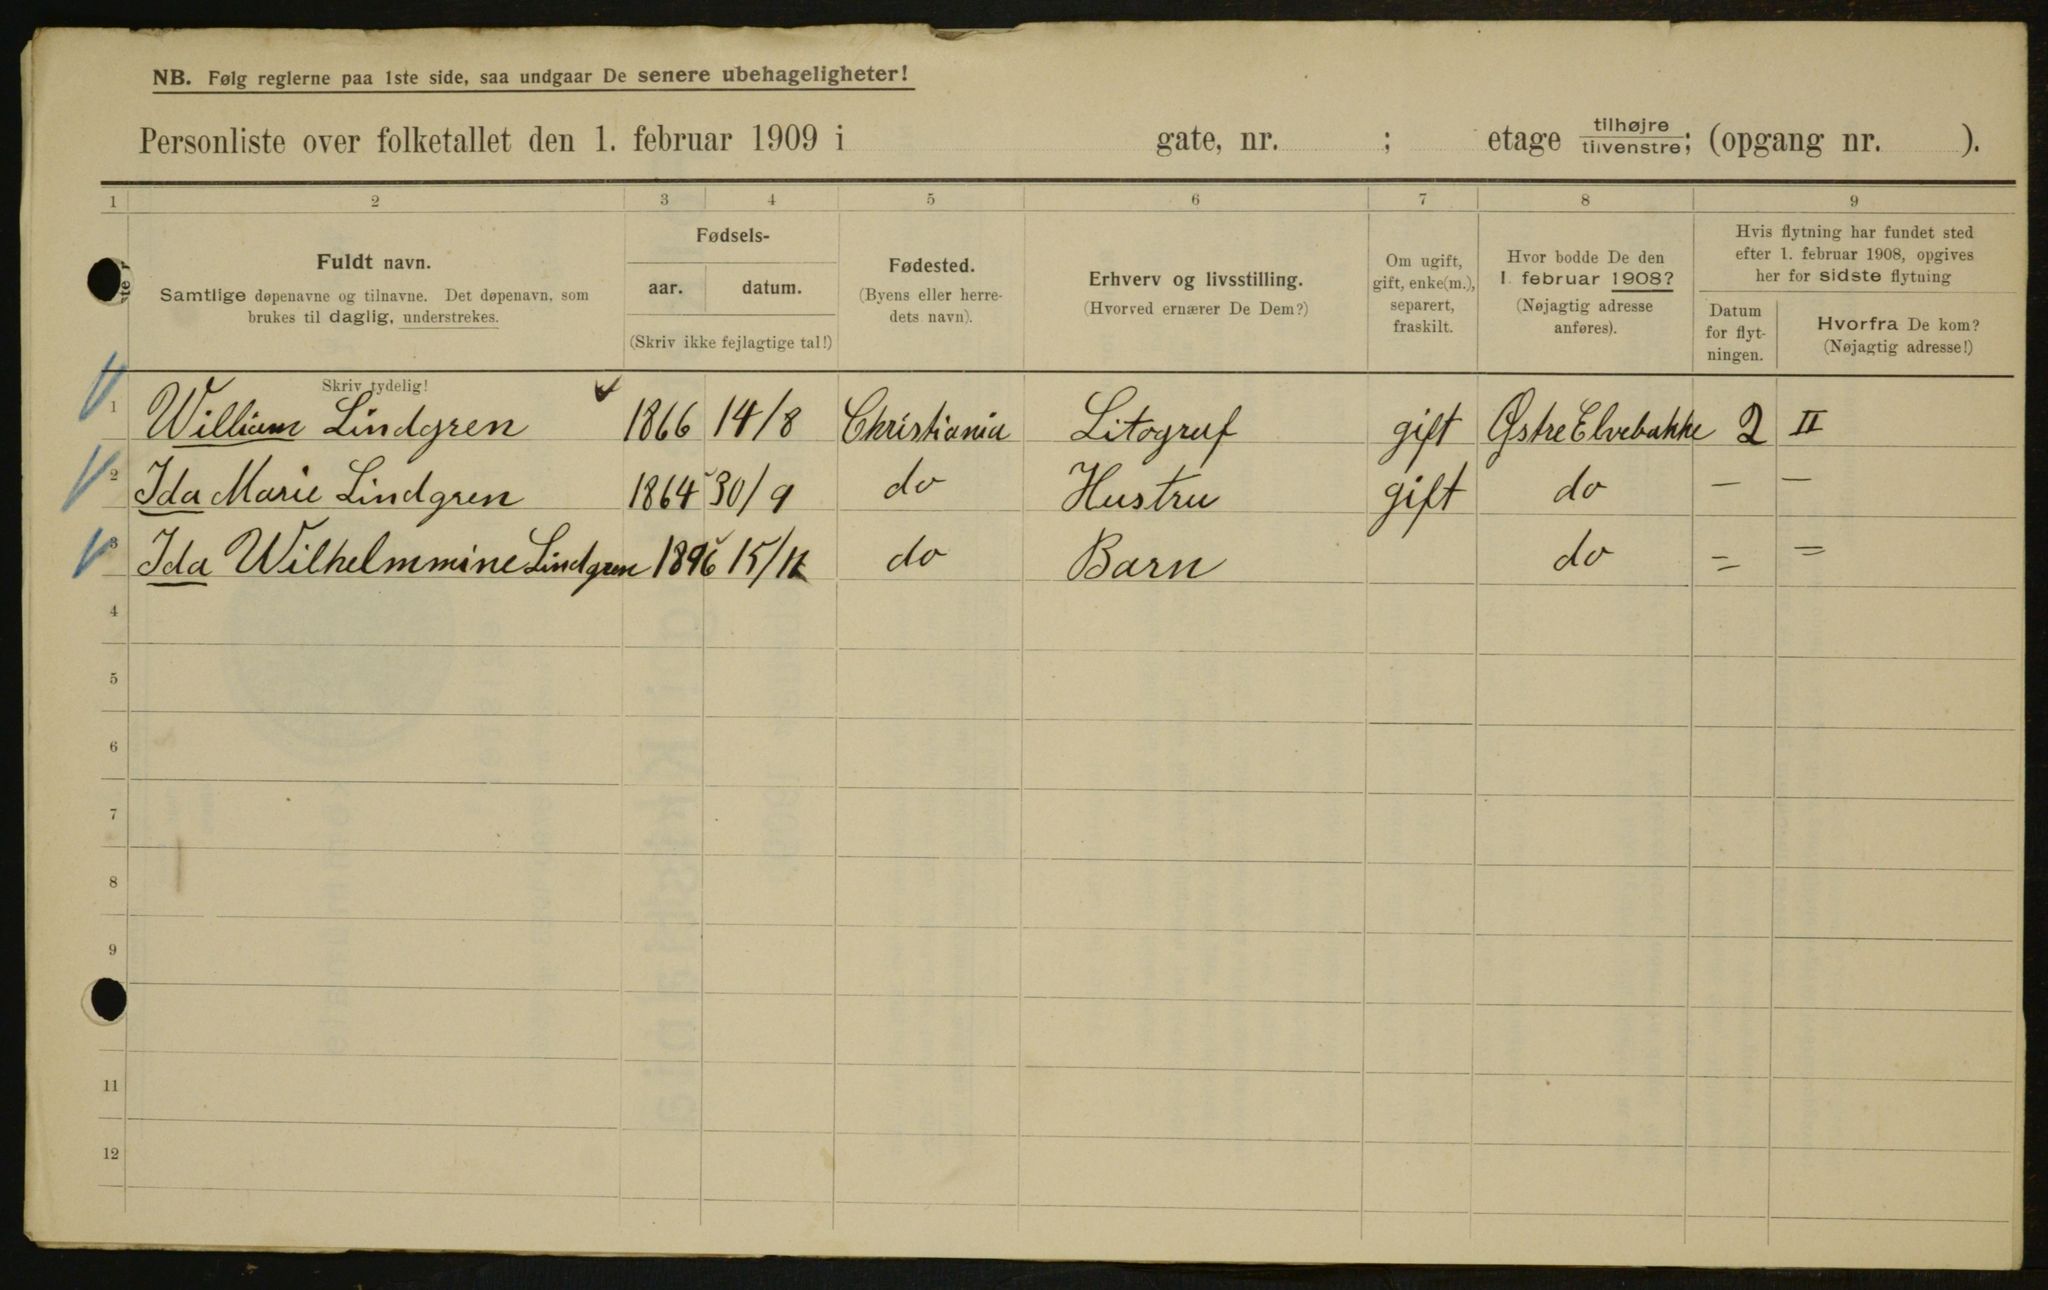 NB. Følg reglerne paa 1ste side, saa undgaar De senere ubehageligheter!
Personliste over folketallet den 1. februar 1909 i gate, nr. ; etage tilhøjre tilvenstre; (opgang nr. ).
1 2 3 4 5 6 7 8 9
Fuldt navn.
Samtlige døpenavne og tilnavne. Det døpenavn, som
brukes til daglig, understrekes.
Skriv tydelig!
Fødsels-
aar. datum.
(Skriv ikke fejlagtige tal!)
Fødested.
(Byens eller herre-
dets navn).
Erhverv og livsstilling.
(Hvorved ernærer De Dem?)
Om ugift,
gift, enke(m.),
separert,
fraskilt.
Hvor bodde De den
1. februar 1908?
(Nøjagtig adresse
anføres).
Hvis flytning har fundet sted
efter 1. februar 1908, opgives
her for sidste flytning
Datum
for flyt-
ningen.
Hvorfra De kom?
(Nøjagtig adresse!)
1 William Lindgren 1866 14/8 Christiania Litograf gift Østre Elvebakke 2 II
2 Ida Marie Lindgren 1864 30/9 do Hustru gift do — —
3 Ida Wilhelmmine Lindgren 1896 15/ do Barn do = =
4
5
6
7
8
9
11
12